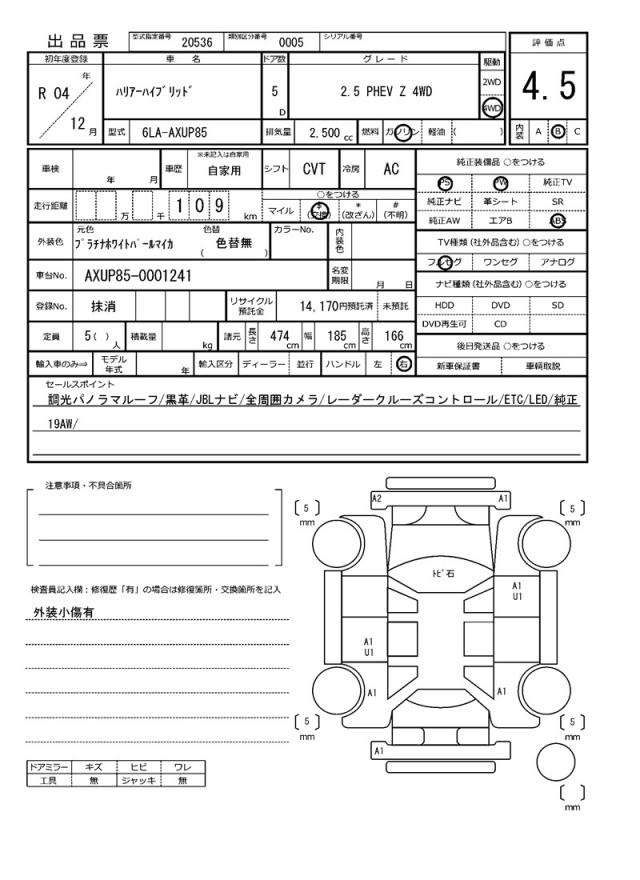 出品票 型式指定番号 20536 類別区分番号 0005 シリアル番号
評価点
4.5
内装 A B C
初年度登録 車名 ドア数 グレード 駆動
R 04 年 12 月
ハリアーハイブリッド 5 D 2.5 PHEV Z 4WD 2WD 4WD
型式 6LA-AXUP85 排気量 2,500 cc 燃料 ガソリン 軽油 ( )
車検 年 月 車歴 ※未記入は自家用 自家用 シフト CVT 冷房 AC
走行距離 万 千 1 0 9 km ○をつける マイル $(交換) *(改ざん) #(不明)
外装色 元色 プラチナホワイトパールマイカ 色替 ( 色替無 ) カラーNo. 内装色
車台No. AXUP85-0001241 名変期限 月 日
登録No. 抹消 リサイクル預託金 14,170円預託済 未預託
定員 5( ) 人 積載量 kg 諸元 長さ 474 cm 幅 185 cm 高さ 166 cm
輸入車のみ⇒ モデル年式 年 輸入区分 ディーラー 並行 ハンドル 左 右
純正装備品 ○をつける
PS PW 純正TV
純正ナビ 革シート SR
純正AW エアB ABS
TV種類(社外品含む) ○をつける
フルセグ ワンセグ アナログ
ナビ種類(社外品含む) ○をつける
HDD DVD SD
DVD再生可 CD
後日発送品 ○をつける
新車保証書 車輌取説
セールスポイント
調光パノラマルーフ/黒革/JBLナビ/全周囲カメラ/レーダークルーズコントロール/ETC/LED/純正
19AW/
注意事項・不具合箇所
検査員記入欄：修復歴「有」の場合は修復箇所・交換箇所を記入
外装小傷有
ドアミラー キズ ヒビ ワレ
工具 無 ジャッキ 無
A2 A1
[ 5 ] mm [ 5 ] mm
トビ石
A1
U1
A1
U1
A1 A1
[ 5 ] mm [ 5 ] mm
A1
[ ] mm